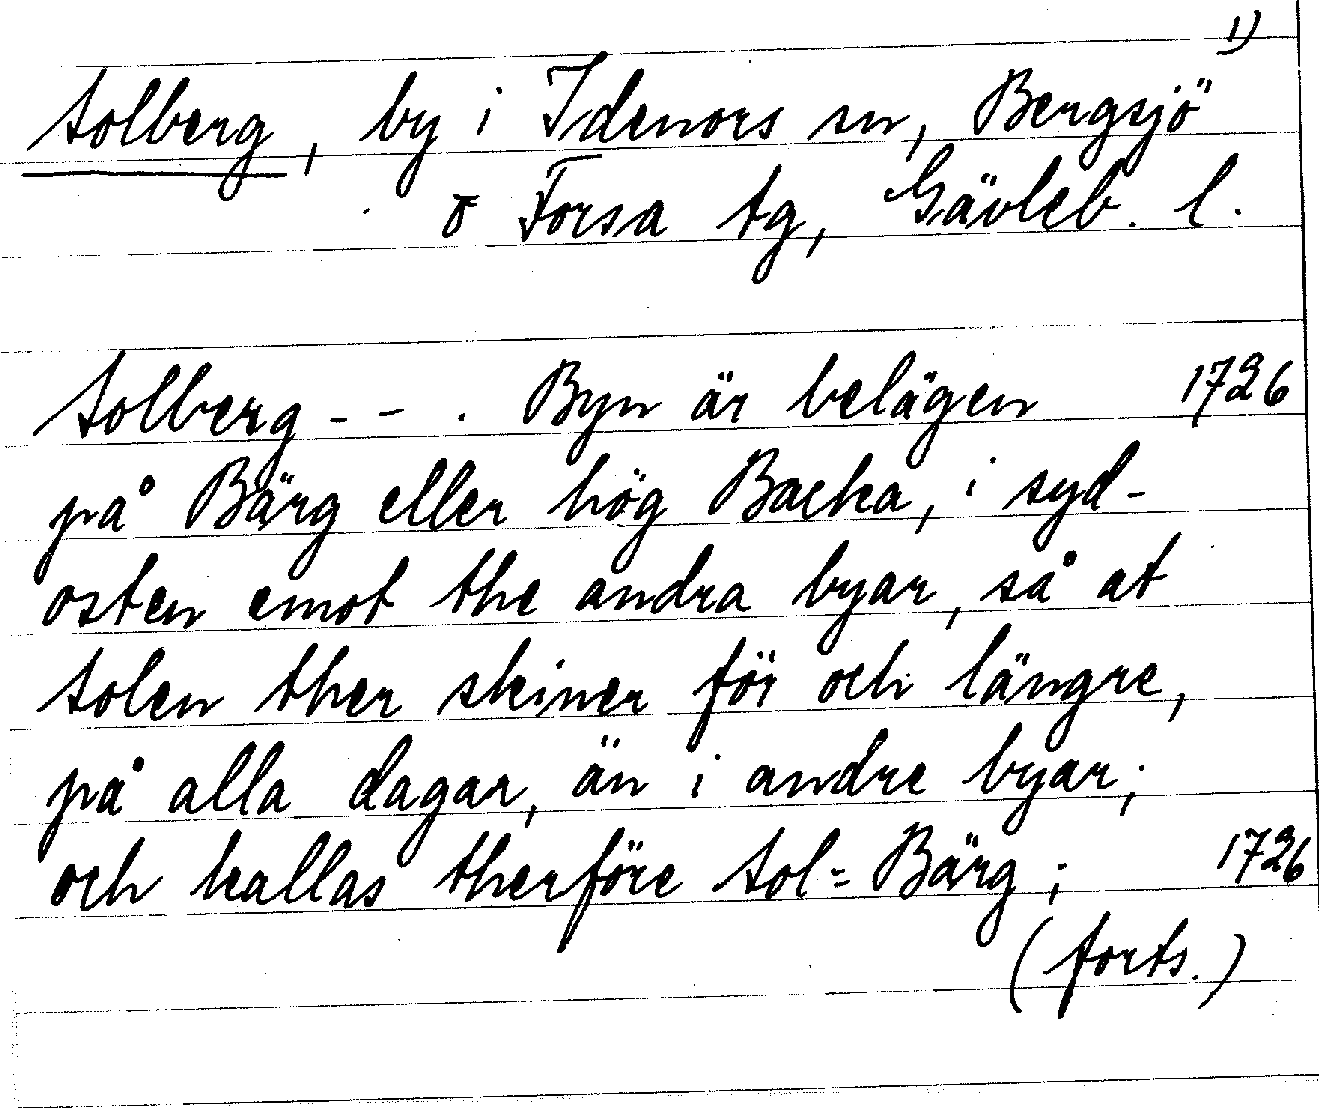 1)
Solberg, by i Idenors sn, Bergsjö
o Forsa tg, Gävleb. l.
Solberg - - . Byn är belägen 1726
på Bärg eller hög Backa, i syd-
osten emot the andra byar, så at
Solen ther skiner för och längre,
på alla dagar, än i andre byar;
och kallas therföre Sol=Bärg; 1726
(forts.)